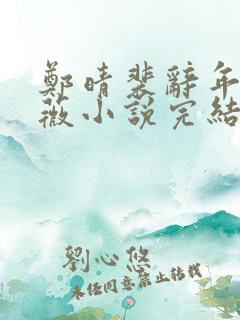 鄭晴裴辭年
薇小說完結
劉心悠
未经同意禁止转载